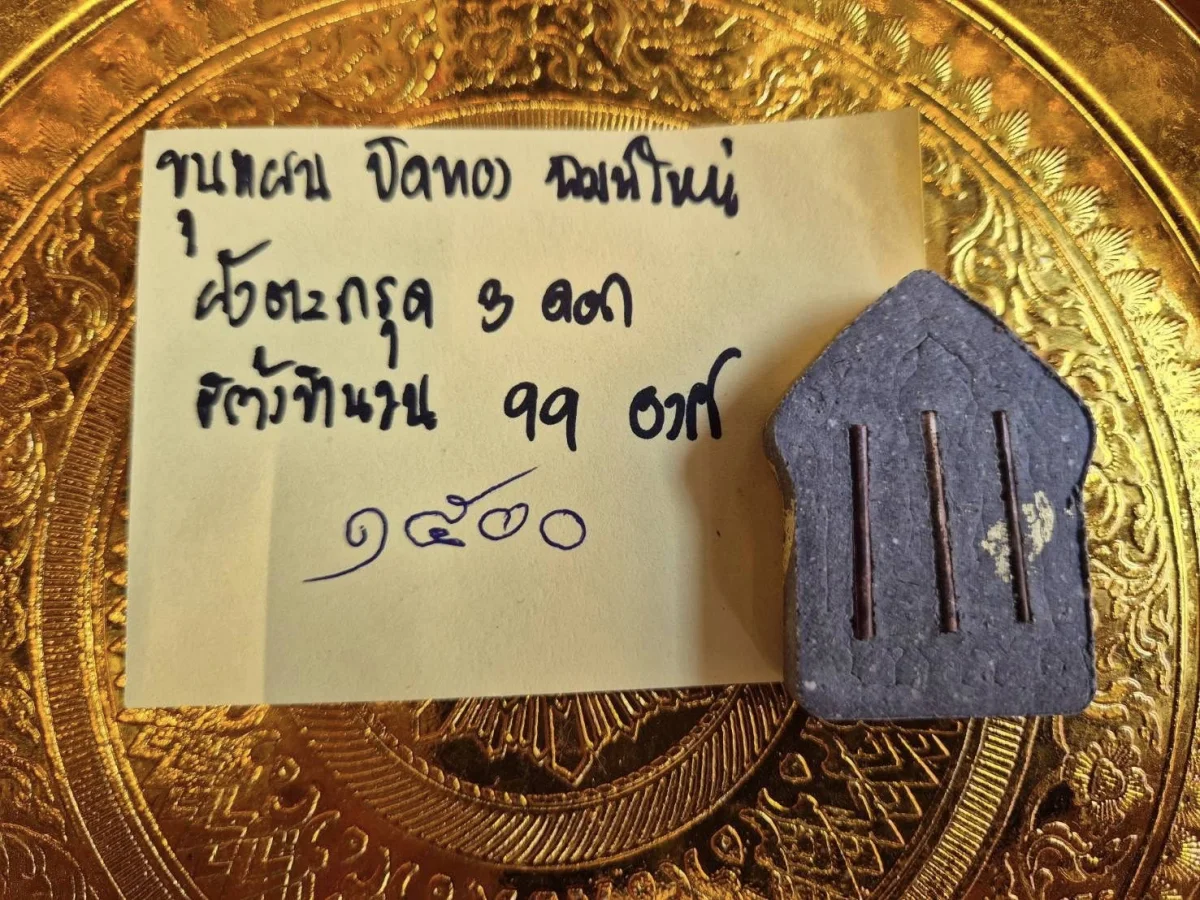 ขุนแผน ปิดทอง พิมพ์ใหญ่
ฝังตะกรุด 3 ดอก
สร้างจำนวน 99 องค์
๑๕๐๐